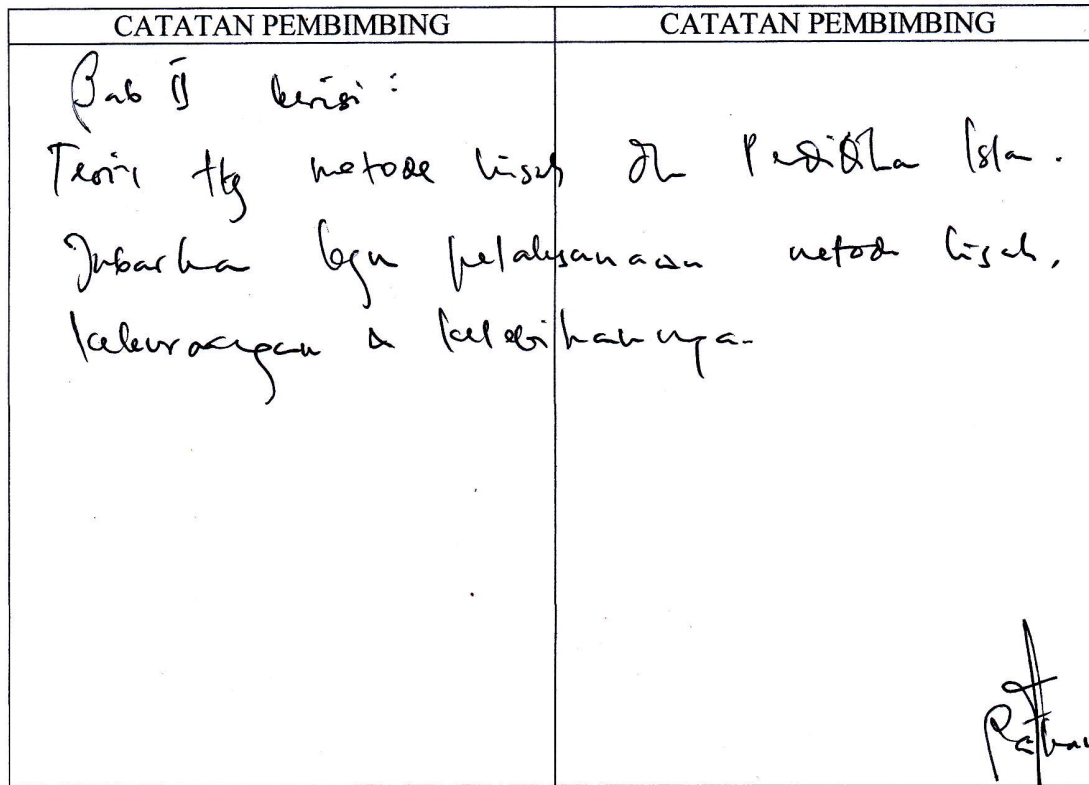 CATATAN PEMBIMBING CATATAN PEMBIMBING
Bab II berisi :
Teori ttg metode kisah dlm Pendidikan Islam.
Jabarkan bgmn pelaksanaan metode kisah,
kekurangan & kelebihannya.